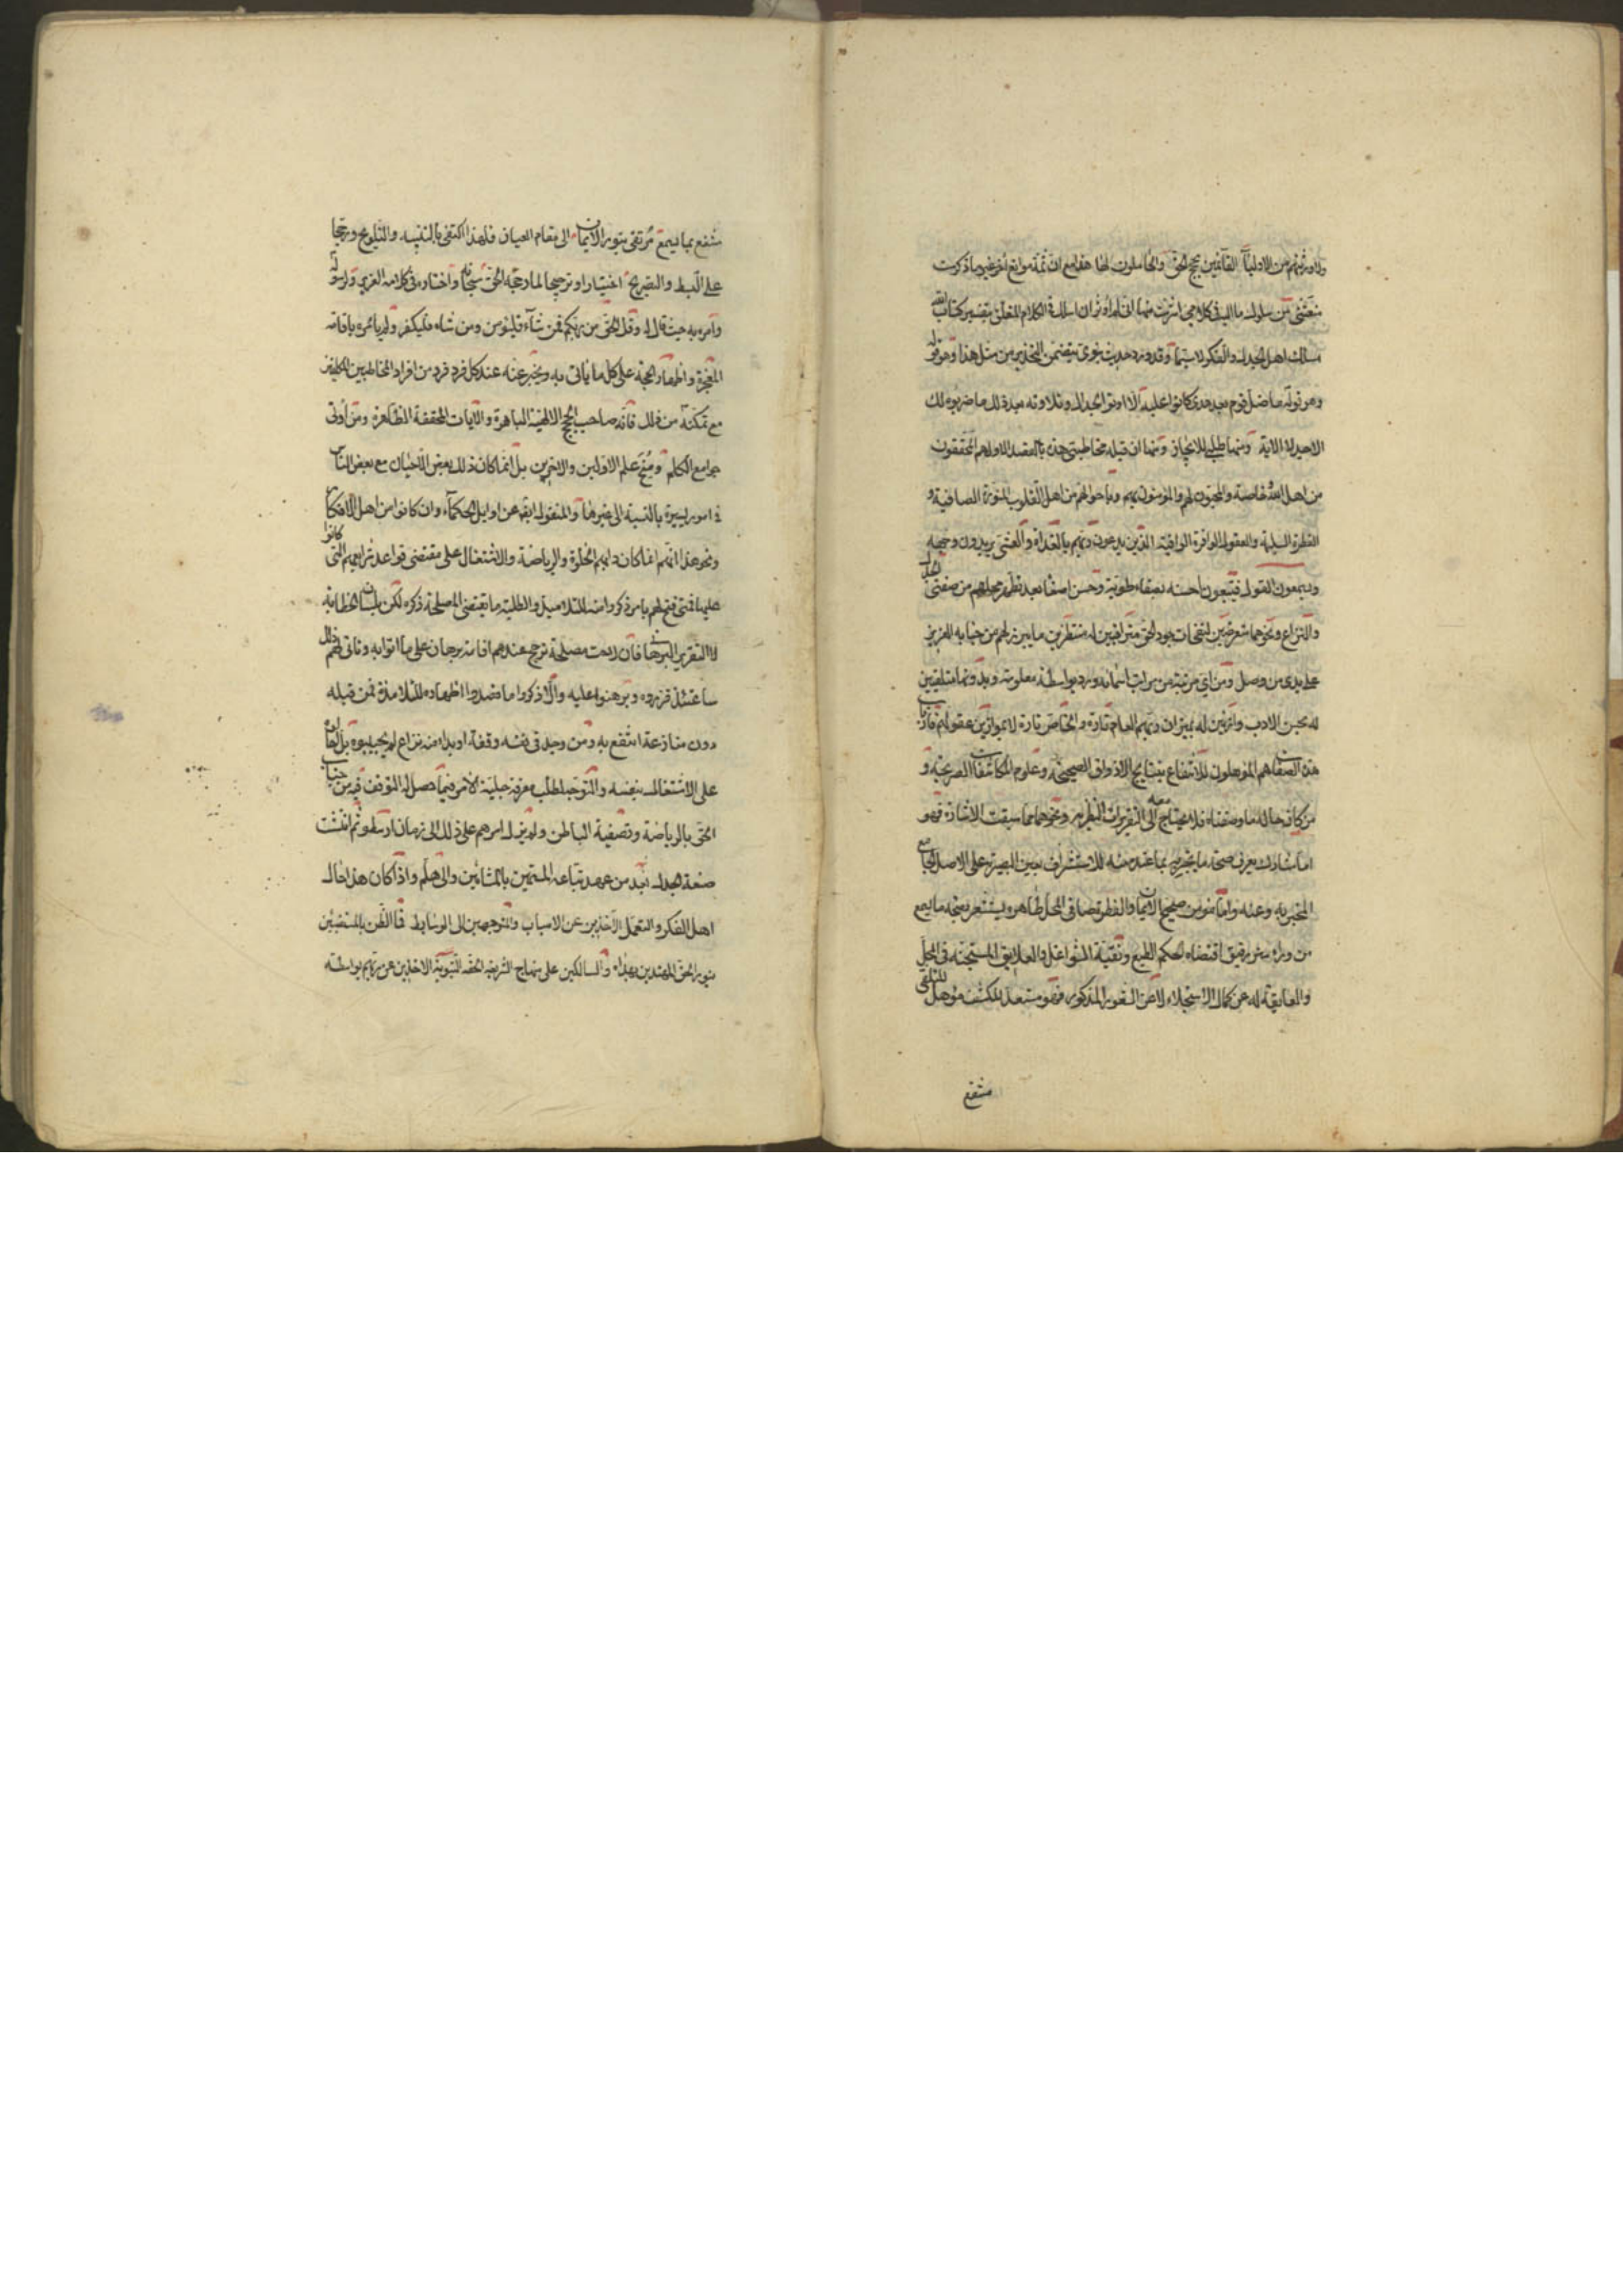 ولا ورثتهم من الاولياء القائمين بحجج الحق والحاملون لها هذا مع ان ثمة موانع أخر غير ما ذكرت
منعتنى من سلوك ما اليه فى كلامى اشرت منها انى لم أوثر ان اسلك فى الكلام المتعلق بتفسير كتاب الله
مسلك اهل الجدل والفكر لا سيما وقد ورد حديث نبوى يتضمن التحذير من مثل هذا وهو قوله
وهو قوله ما ضل قوم بعد هدى كانوا عليه الا اوتوا الجدل وتلاوته بعد ذلك ما ضربوه لك
الا جدلا الاية ومنها طلبى للايجاز ومنها ان قبلة مخاطبتى هذه بالقصد الاول هم المحققون
من اهل الله وخاصته والمحبون لهم والمؤمنون بهم وباحوالهم من اهل القلوب المنورة الصافية و
الفطرة السليمة والعقول الوافرة الوافية الذين يدعون ربهم بالغداة والعشى يريدون وجهه
ويستمعون القول فيتبعون احسنه بصفاء طوية وحسن اصغاء بعد تطهير محلهم من صفتى الجدل
والنزاع ونحوهما متعرضين لنفحات جود الحق مراقبين له منتظرين ما يبرز لهم من جنابه العزيز
على يدى من وصل ومن اى مرتبة من مراتب اسمائه ورد بواسطة معلومة وبدونها متلقين
له بحسن الادب وازنين له بميزان ربهم العام تارة والخاص تارة لا بموازين عقولهم فارباب
هذه الصفات هم المؤهلون للانتفاع بنتايج الاذواق الصحيحة وعلوم المكاشفات الصريحة و
من كان حاله ما وصفناه فلا يحتاج معه الى التقريرات النظرية ونحوها مما سبقت الاشارة فهو
اما مشارك يعرف صحة ما يخبر به بما عنده منه للاستشراف بعين البصيرة على الاصل الجامع
المخبر به وعنه واما مؤمن صحيح الايمان والفطرة صافى المحل طاهره يشعر بصحة ما يسمع
من وراء ستر رقيق اقتضاه حكم الطبع وبقية الشواغل والعلايق المستجنة فى المحل
والعايقة له عن كمال الاستجلاء لا عن الشعور المذكور فهو مستعد للكشف مؤهل للتلقى
منتفع
منتفع بما يسمع مرتق بنور الايمان الى مقام العيان فلهذا اكتفى بالتنبيه والتلويح ورجحا
على البسط والتصريح اختيارا وترجيحا لما رجحه الحق سبحانه واختاره فى كلامه العزيز ولرسوله
وامره به حيث قال له وقل الحق من ربكم فمن شاء فليؤمن ومن شاء فليكفر ولم يأمره باقامة
المعجزة واظهار الحجة على كل ما يأتى به ويخبر عنه عند كل فرد فرد من افراد المخاطبين المكلفين
مع تمكنه من ذلك فانه صاحب الحجج الالهية الباهرة والآيات المحققة الظاهرة ومن أوتى
جوامع الكلم ومنح علم الاولين والآخرين بل انما كان ذلك بعض الاحيان مع بعض الناس
فى امور يسيرة بالنسبة الى غيرها والمنقول ايضا عن اوايل الحكماء وان كانوا من اهل الافكار
ونحو هذا انهم انما كان دابهم الخلوة والرياضة والاشتغال على مقتضى قواعد شرايعهم التى كانوا
عليها فمتى فتح لهم بامر ذكروا منه للتلاميذ والطلبة ما يقتضى المصلحة ذكره لكن بلسان الخطابة
لا التقرير البرهانى فان لاحت مصلحة ترجح عندهم اقامة برهان على ما اتوا به وتأتى لهم ذلك
ساعتئذ قرروه وبرهنوا عليه والا ذكروا ما قصدوا اظهاره للتلامذة فمن قبله
دون منازعة انتفع به ومن وجد فى نفسه وقفة او بدا منه نزاع لم يجيبوه بل احالوه
على الاشتغال بنفسه والتوجه لطلب معرفة جلية الامر فيما حصل له التوقف فيه من جناب
الحق بالرياضة وتصفية الباطن ولم يزل امرهم على ذلك الى زمان ارسطو ثم انتشت
صنعة الجدل بعد من عهد تباعه المسمين بالمشائين والى هلم واذا كان هذا حال
اهل الفكر والتعمل الآخذين عن الاسباب والمتوجهين الى الوسايط فما الظن بالمستضيئين
بنور الحق المهتدين بهداه والسالكين على منهاج الشريعة الحقة النبوية الاخذين عن ربهم بواسطة